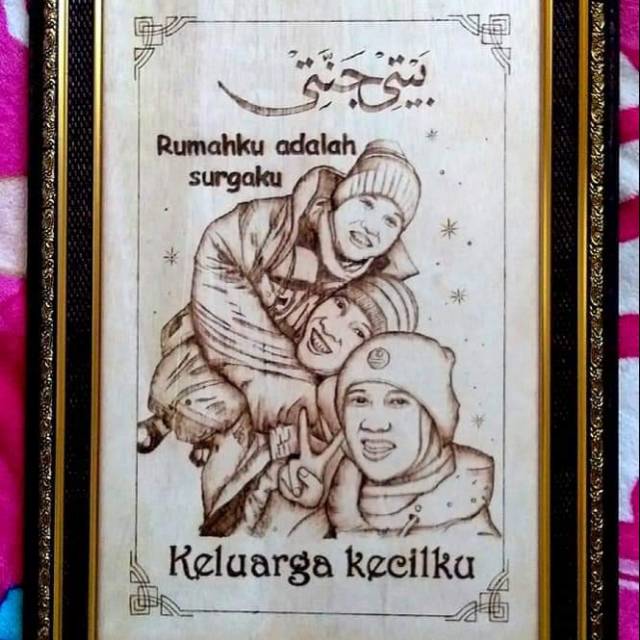 بَيْتِيْ جَنَّتِيْ
Rumahku adalah
surgaku
Keluarga kecilku